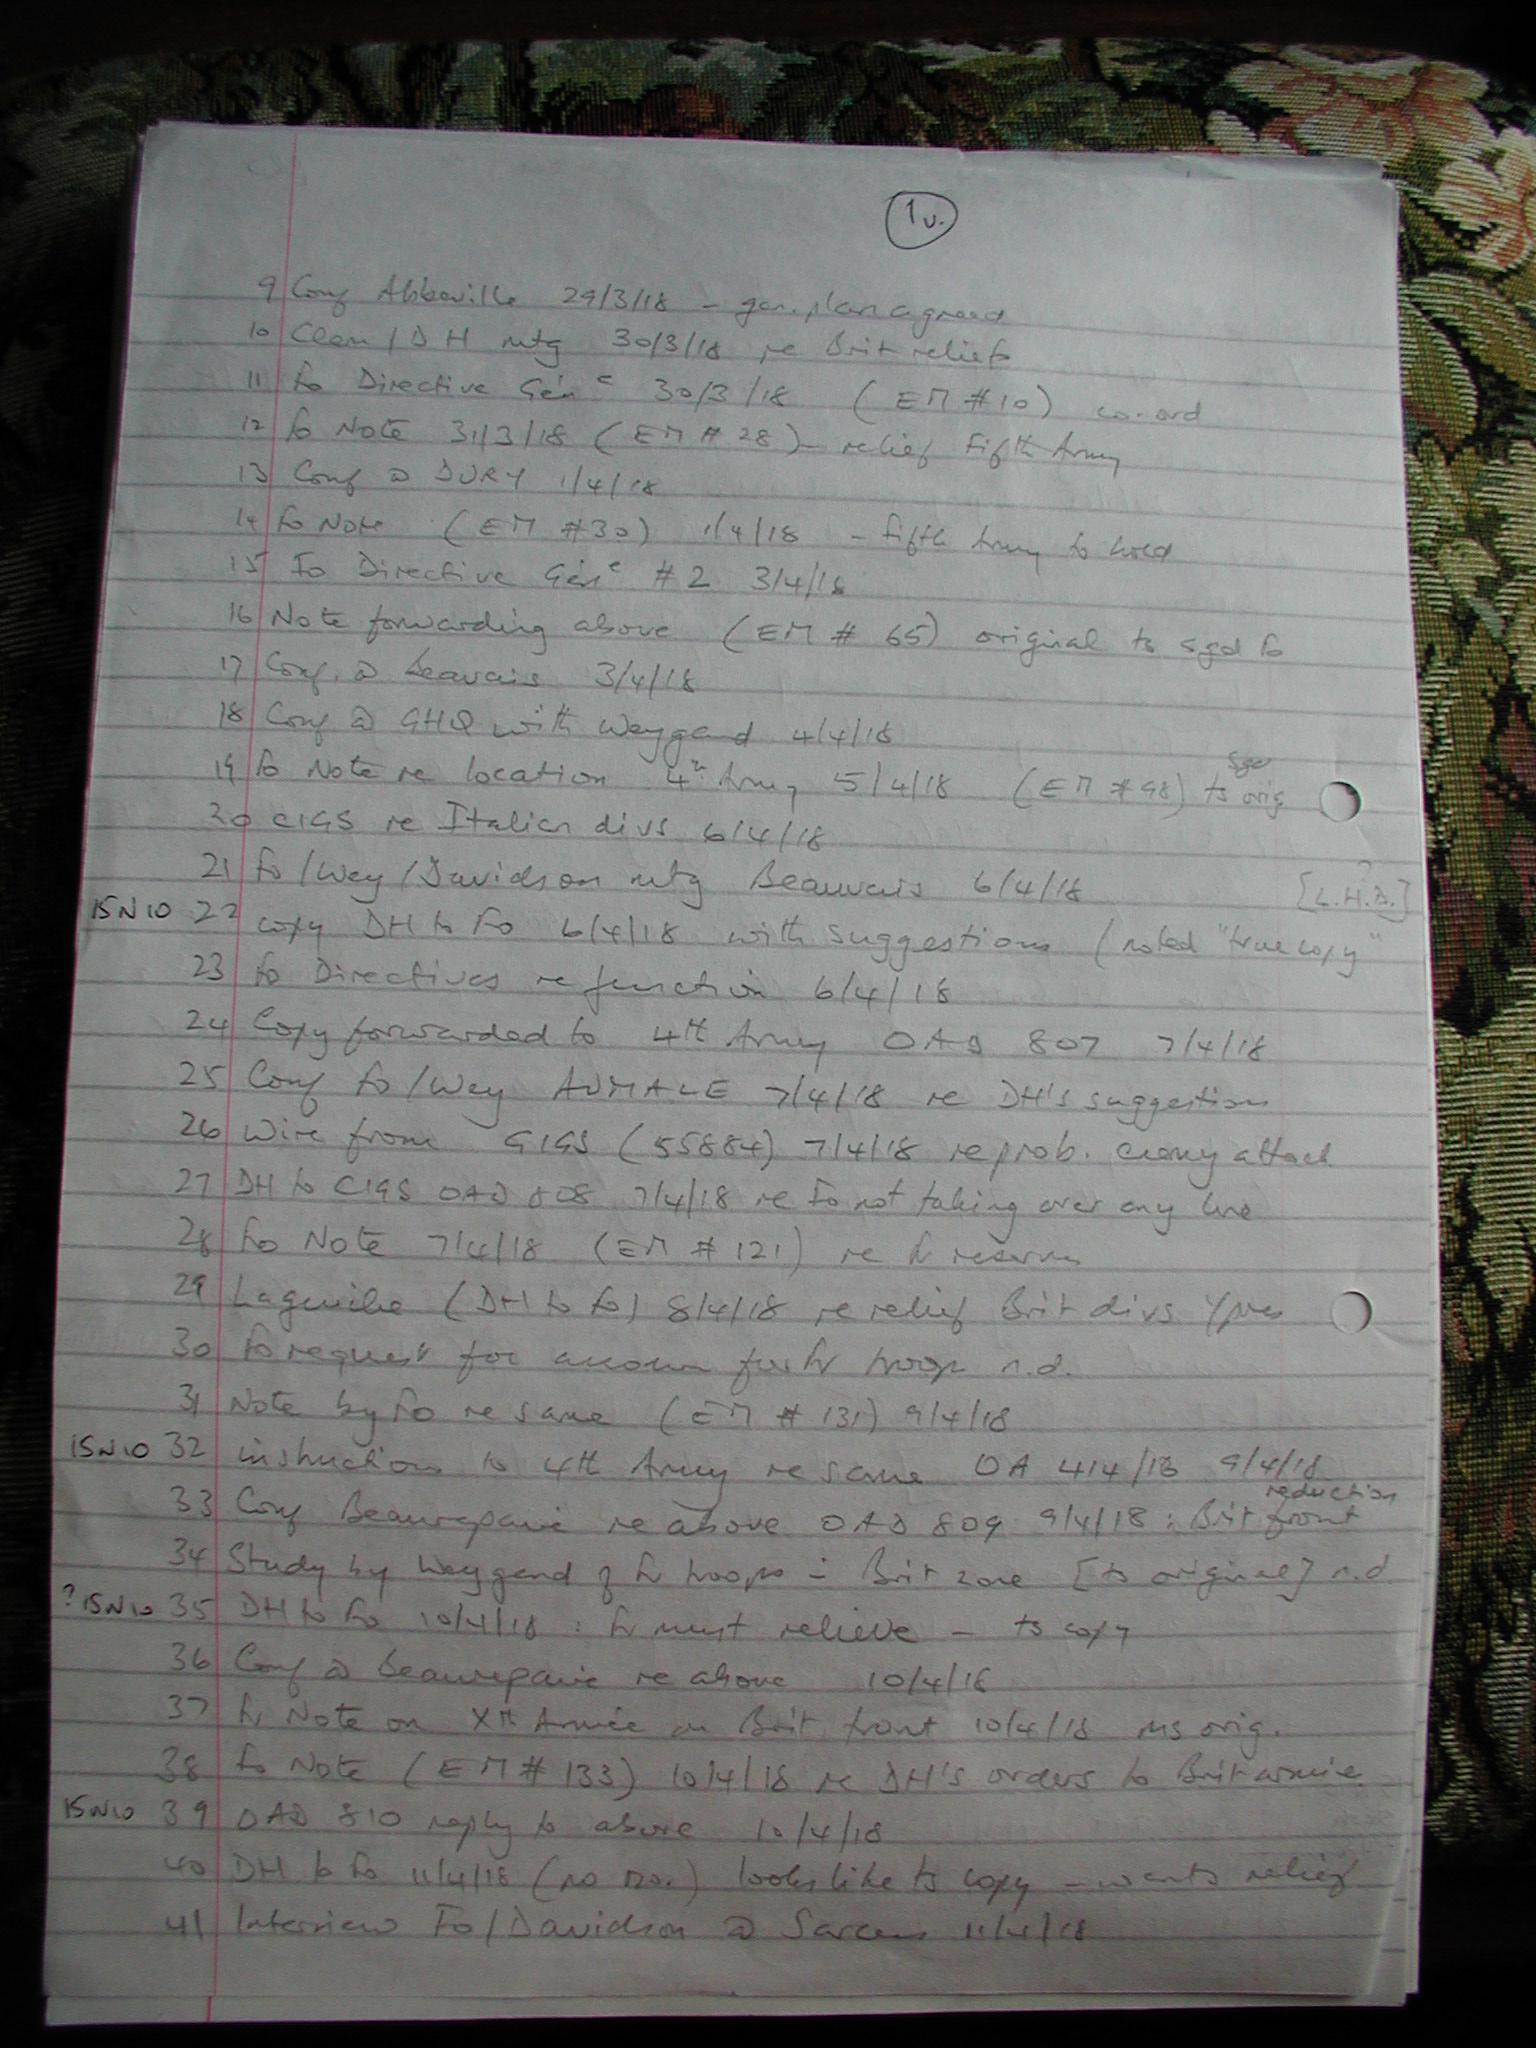 1v.
9 Conf Abbeville 29/3/18 – gen. plan agreed
10 Clem / DH mtg 30/3/18 re Brit relief
11 Fo Directive Génᵉ 30/3/18 (EM #10) co-ord
12 Fo Note 31/3/18 (EM # 28) – relief Fifth Army
13 Conf @ DURY 1/4/18
14 Fo Note (EM #30) 1/4/18 – Fifth Army to hold
15 Fo Directive Génᵉ #2 3/4/18
16 Note forwarding above (EM # 65) original ts sgd Fo
17 Conf. @ Beauvais 3/4/18
18 Conf @ GHQ with Weygand 4/4/18
19 Fo Note re location 4th Army 5/4/18 (EM #98) sgd ts orig
20 CIGS re Italian divs 6/4/18
21 Fo/Wey/Davidson mtg Beauvais 6/4/18
ISN10 22 copy DH to Fo 6/4/18 with suggestions (noted "true copy" [L.H.D.] ?
23 Fo Directives re function 6/4/18
24 Copy forwarded to 4th Army OAD 807 7/4/18
25 Conf Fo/Wey AUMALE 7/4/18 re DH's suggestion
26 Wire from CIGS (55884) 7/4/18 re prob. enemy attack
27 DH to CIGS OAD 808 7/4/18 re Fo not taking over any line
28 Fo Note 7/4/18 (EM # 121) re Fr reserves
29 Laguiche (DH to Fo) 8/4/18 re relief Brit divs Ypres
30 Fo request for accom for Fr troops n.d.
31 Note by Fo re same (EM # 131) 9/4/18
ISN10 32 instructions to 4th Army re same OA 414/18 9/4/18
33 Conf Beaurepaire re above OAD 809 9/4/18 : reduction Brit front
34 Study by Weygand of Fr troops in Brit zone [ts original] n.d.
? ISN10 35 DH to Fo 10/4/18 : Fr must relieve – ts copy
36 Conf @ Beaurepaire re above 10/4/18
37 Fr Note on Xth Armée on Brit front 10/4/18 ms orig.
38 Fo Note (EM # 133) 10/4/18 re DH's orders to Brit armies
ISN10 39 OAD 810 reply to above 10/4/18
40 DH to Fo 11/4/18 (no no.) looks like ts copy – wants relief
41 Interview Fo/Davidson @ Sarcus 11/4/18